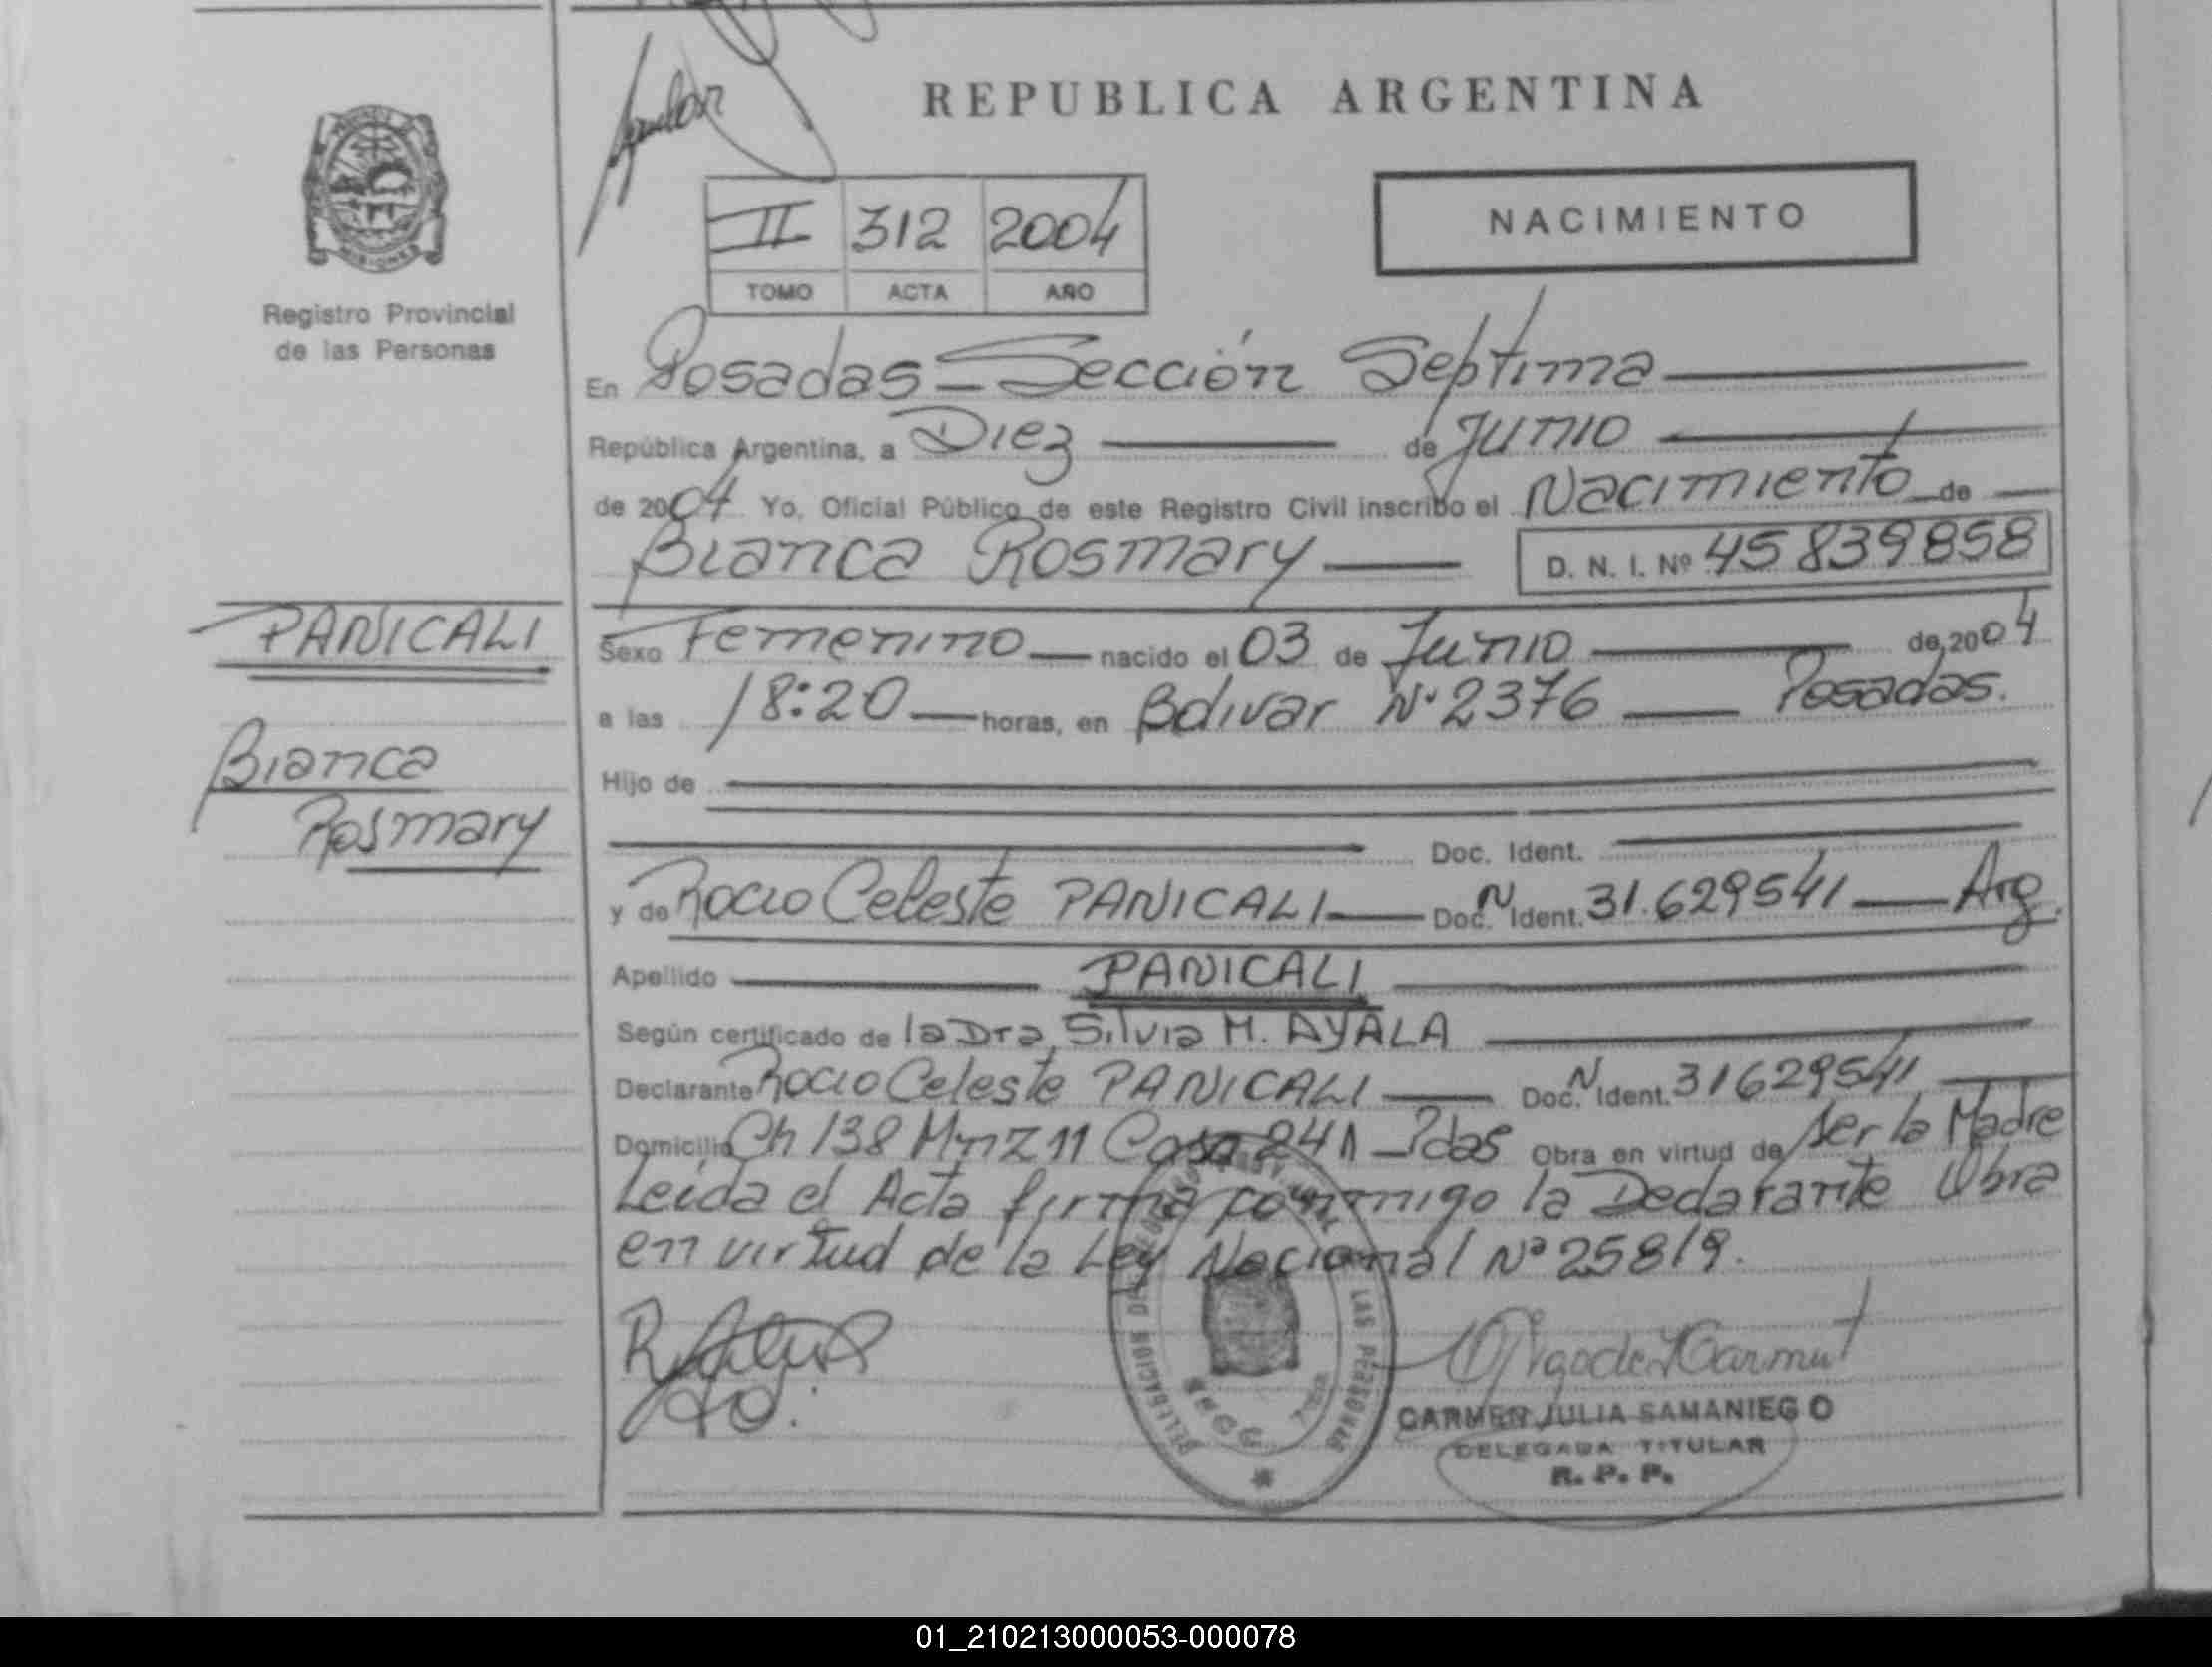 REPUBLICA ARGENTINA
MISIONES
Registro Provincial
de las Personas
II 312 2004
TOMO ACTA AÑO
NACIMIENTO
En Posadas - Sección Septima
República Argentina, a Diez de Junio
de 2004 Yo, Oficial Público de este Registro Civil inscribo el Nacimiento de
Bianca Rosmary D. N. I. Nº 45 839858
PANICALI
Bianca
Rosmary
Sexo Femenino nacido el 03 de Junio de 2004
a las 18:20 horas, en Bolivar Nº 2376 Posadas.
Hijo de
Doc. Ident.
y de Rocio Celeste PANICALI Doc. N Ident. 31.629541 Arg.
Apellido PANICALI
Según certificado de la Dra. Silvia M. AYALA
Declarante Rocio Celeste PANICALI Doc. N Ident. 31629541
Domicilio Ch 138 Mnz 11 Casa 241 - Pdas Obra en virtud de ser la Madre
Leida el Acta firma conmigo la Declarante Obra
en virtud de la Ley Nacional Nº 25819.
CARMEN JULIA SAMANIEGO
DELEGADA TITULAR
R. P. P.
DELEGACION LAS PERSONAS
01_210213000053-000078